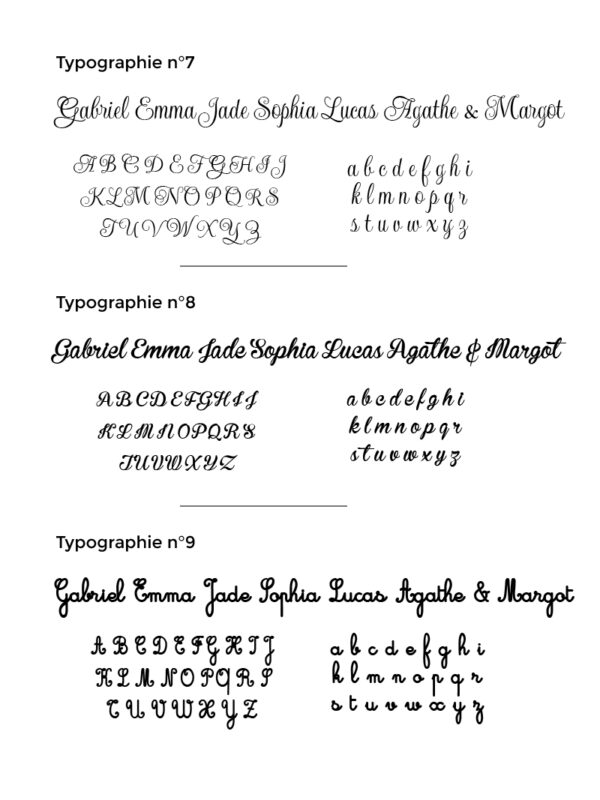 Typographie n°7
Gabriel Emma Jade Sophia Lucas Agathe & Margot
A B C D E F G H I J
K L M N O P Q R S
T U V W X Y Z
a b c d e f g h i
k l m n o p q r
s t u v w x y z
Typographie n°8
Gabriel Emma Jade Sophia Lucas Agathe & Margot
A B C D E F G H I J
K L M N O P Q R S
T U V W X Y Z
a b c d e f g h i
k l m n o p q r
s t u v w x y z
Typographie n°9
Gabriel Emma Jade Sophia Lucas Agathe & Margot
A B C D E F G H I J
K L M N O P Q R S
T U V W X Y Z
a b c d e f g h i
k l m n o p q r
s t u v w x y z